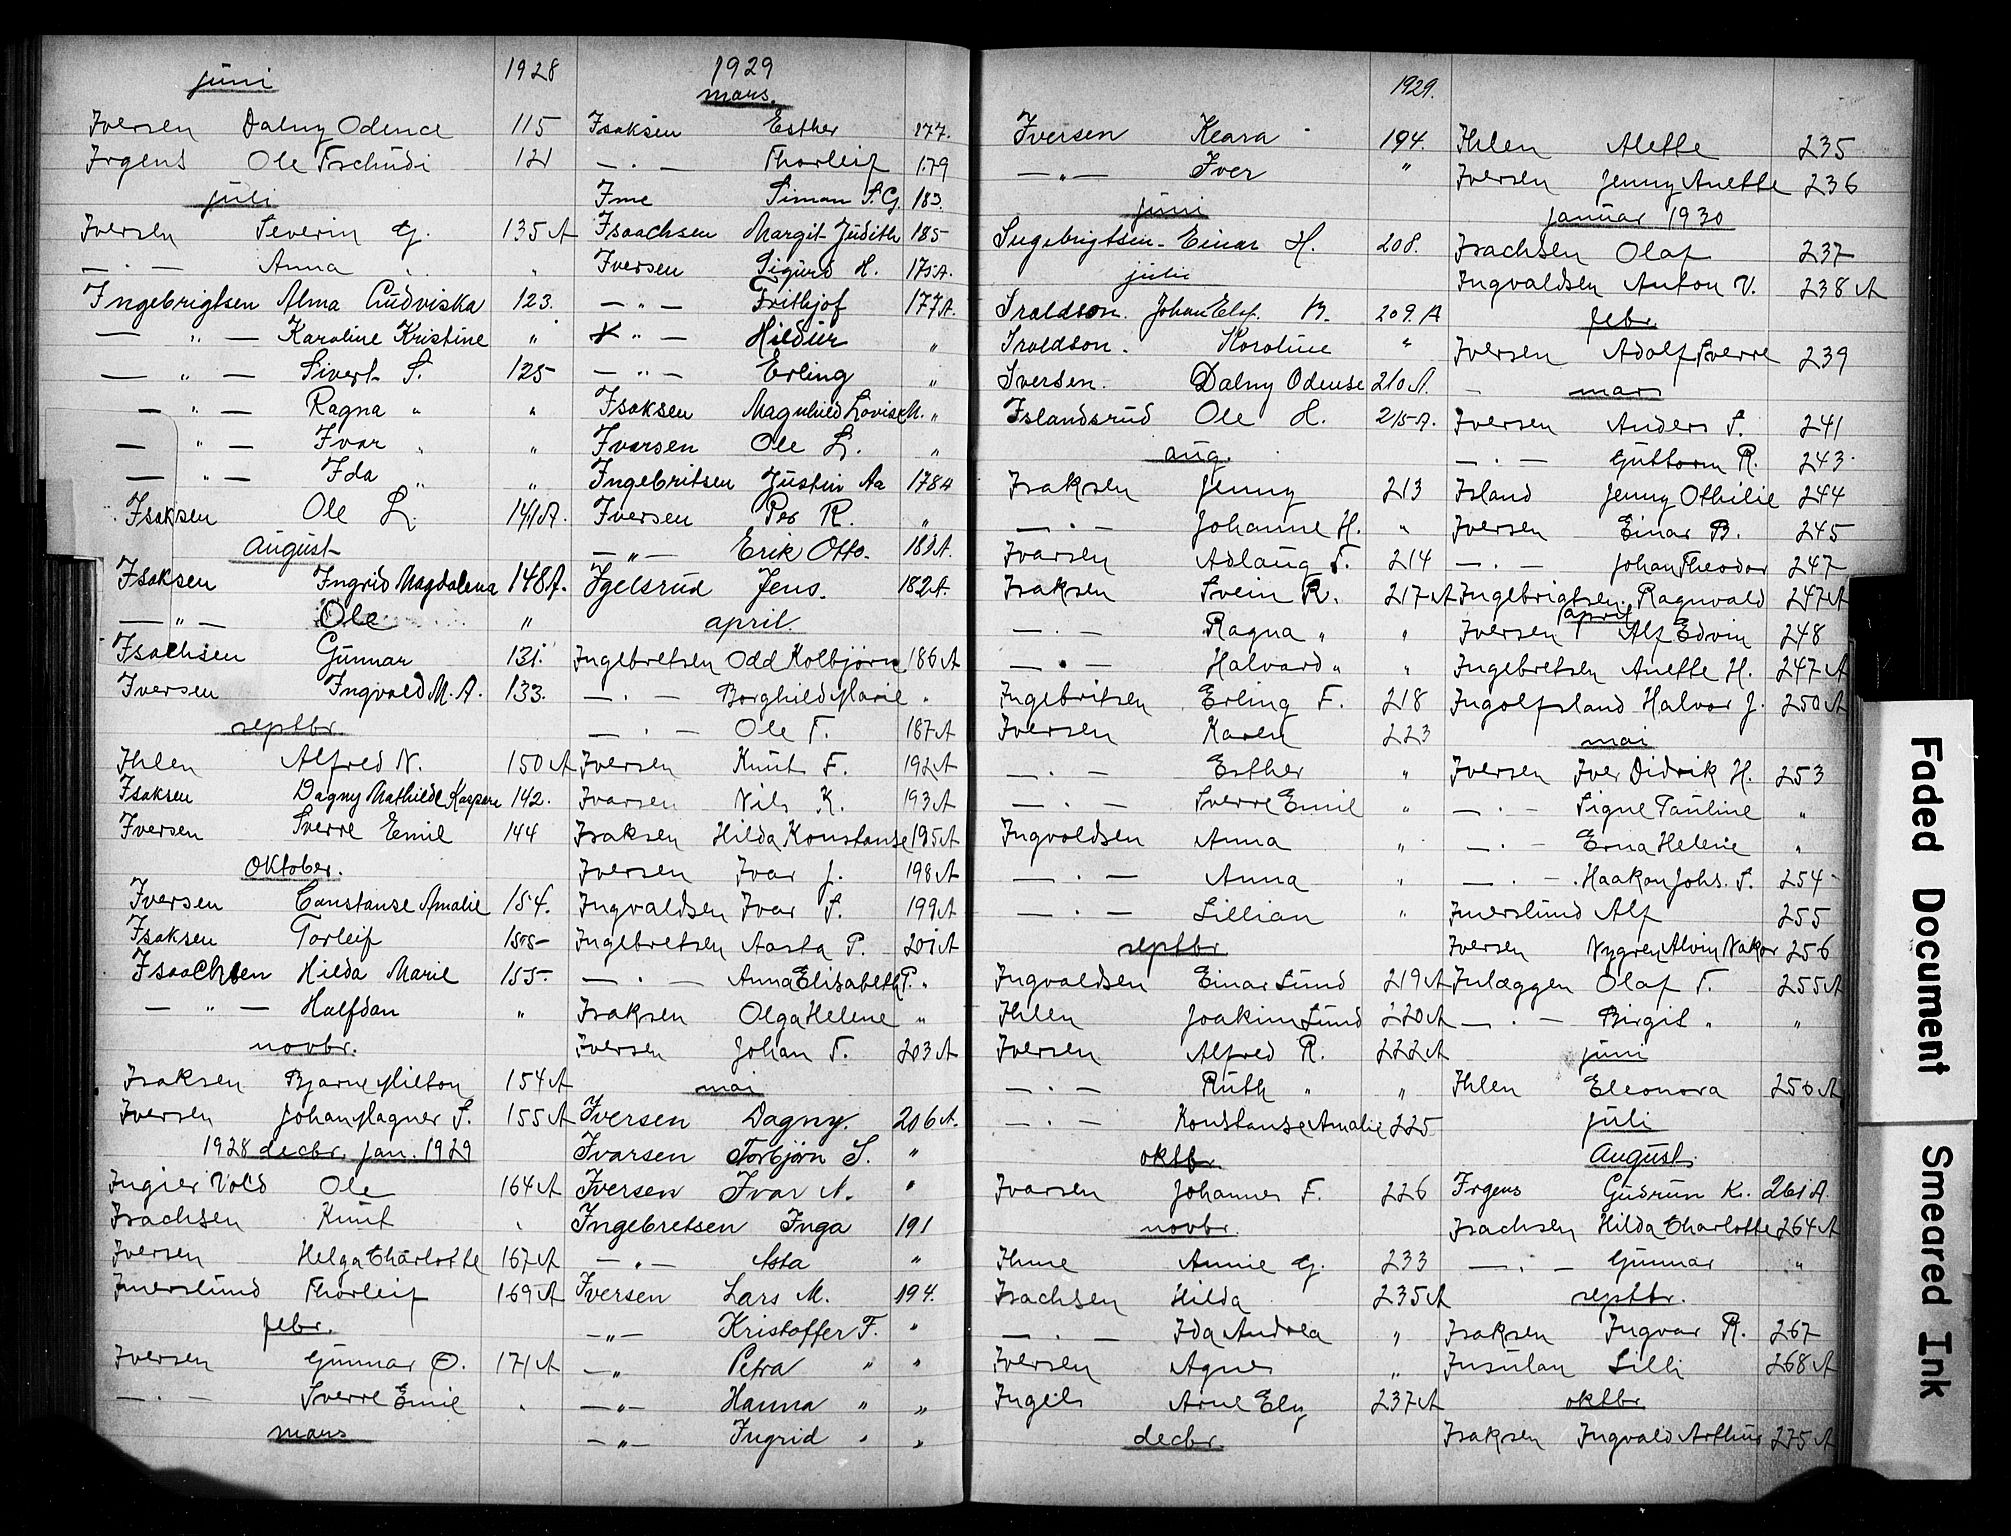 juni 1928
Iversen Dalny Odence 115
Irgens Ole Tschudi 121
juli
Iversen Severin G. 135 A
— . — Anna "
Ingebrigtsen Alma Ludviska 123.
— " — Karoline Kristine "
— " — Sivert S. 125
— " — Ragna " "
— " — Ivar " "
— " — Ida " "
Isaksen Ole L. 141 A.
August
Isaksen Ingrid Magdalena 148 A.
— " — Ole "
Isachsen Gunnar 131.
Iversen Ingvald M. A. 133.
septbr.
Ihlen Alfred N. 150 A
Isaksen Dagny Mathilde Kaspara 142.
Iversen Sverre Emil 144
Oktober.
Iversen Constanse Amalie 154.
Isaksen Torleif 155
Isaachsen Hilda Marie 155
— " — Halfdan "
novbr.
Isaksen Bjarne Milton 154 A
Iversen Johan Magner S. 155 A
1928 decbr. jan. 1929
Ingier Vold Ole 164 A
Isachsen Knut "
Iversen Helga Charlotte 167 A
Imerslund Thorleif 169 A
febr.
Iversen Gunnar O. 171 A
— . — Sverre Emil "
mars
1929
mars.
Isaksen Esther 177.
— . — Thorleif 179
Ime Simon S. G. 183.
Isaachsen Margit Judith 185
Iversen Sigurd H. 175 A.
— " — Frithjof 177 A.
— " — Hildur "
— " — Erling "
Isaksen Magnhild Lovise M. "
Ivarsen Ole L. "
Ingebritsen Justin Aa 178 A
Iversen Per R. "
— " — Erik Otto. 183 A.
Igelsrud Jens. 182 A.
april
Ingebretsen Odd Kolbjørn 186 A
— . — Borghild Marie "
— . — Ole T. 187 A
Iversen Knut F. 192 A
Ivarsen Nils K. 193 A
Isaksen Hilda Konstanse 195 A
Iversen Ivar J. 198 A
Ingvaldsen Ivar S. 199 A
Ingebretsen Aasta P. 201 A
— . — Anna Elisabeth P. "
Isaksen Olga Helene "
Iversen Johan T. 203 A
mai
Iversen Dagny. 206 A.
Ivarsen Torbjørn S. "
Iversen Ivar A. "
Ingebretsen Inga 191
— " — Asta "
Iversen Lars M. 194.
— " — Kristoffer F. "
— " Petra " "
— " — Hanna " "
— " — Ingrid " "
1929.
Iversen Keara 194.
— " — Iver "
juni
Ingebrigtsen Einar H. 208.
juli
Iraldson. Johan Elof. B. 209. A
Iraldson. Karoline "
Iversen. Dalny Odense 210 A.
Islandsrud Ole H. 215 A.
aug.
Isaksen Jenny 213
— . — Johanne H. "
Ivarsen Adlaug T. 214
Isaksen Svein R. 217 A
— . — Ragna " "
— . — Halvard " "
Ingebritsen Erling F. 218
Iversen Karen 223
— . — Esther "
— . — Sverre Emil "
Ingvaldsen Anna "
— . — Anna "
— . — Lillian "
septbr
Ingvaldsen Einar Lund 219 A
Ihlen Joakim Lund 220 A
Iversen Alfred R. 222 A
— . — Ruth " "
— . — Konstanse Amalie 225
oktbr
Ivarsen Johannes F. 226
novbr.
Ihme Annie G. 233
Isachsen Hilda 235 A
— . — Ida Andrea "
Iversen Agnes "
Ingels Arne Ely 237 A
decbr.
Ihlen Alette 235
Iversen Jenny Anette 236
januar 1930
Isachsen Olaf 237
Ingvaldsen Anton V. 238 A
febr
Iversen Adolf Sverre 239
mars
Iversen Anders S. 241
— . — Guttorm R. 243
Island Jenny Othilie 244
Iversen Einar B. 245
— . — Johan Theodor 247
Ingebrigtsen Ragnvald 247 A
april
Iversen Alf Edvin 248
Ingebretsen Anette H. 247 A
Ingolfsland Halvor J. 250 A
mai
Iversen Iver Didrik H. 253
— . — Signe Pauline "
— . — Erna Helene "
— . — Haakon Johs. S. 254
Imerslund Alf 255
Iversen Nygren Alvin Nakor 256
Inlæggen Olaf T. 255 A
— . — Birgit " "
juni
Ihlen Eleonora 256 A
juli
August.
Irgens Gudrun K. 261 A.
Isachsen Hilda Charlotte 264 A
— . — Gunnar "
septbr.
Isaksen Ingvar R. 267
Insulan Lilli 268 A
oktbr
Isaksen Ingvald Arthur 275 A
Faded Document
Smeared Ink